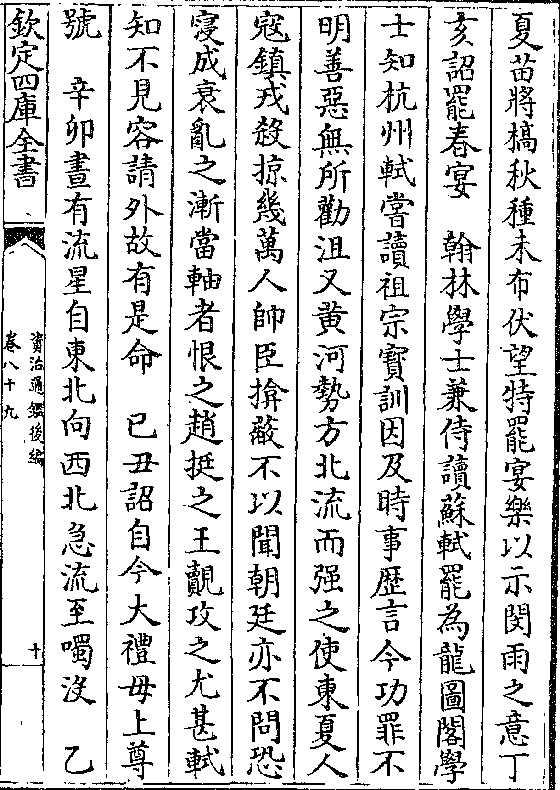 夏苗將槁秋種未布伏望特罷宴樂以示閔雨之意丁
亥詔罷春宴　翰林學士兼侍讀蘇軾罷為龍圖閣學
士知杭州軾嘗讀祖宗寶訓因及時事歴言今功罪不
明善惡無所勸沮又黄河勢方北流而强之使東夏人
寇鎮戎殺掠幾萬人帥臣揜蔽不以聞朝廷亦不問恐
寖成衰亂之漸當軸者恨之趙挺之王觀攻之尤甚軾
知不見容請外故有是命　已丑詔自今大禮毋上尊
號　辛卯晝有流星自東北向西北急流至噣沒　乙
欽定四庫全書
資治通鑑後編
卷八十九
十